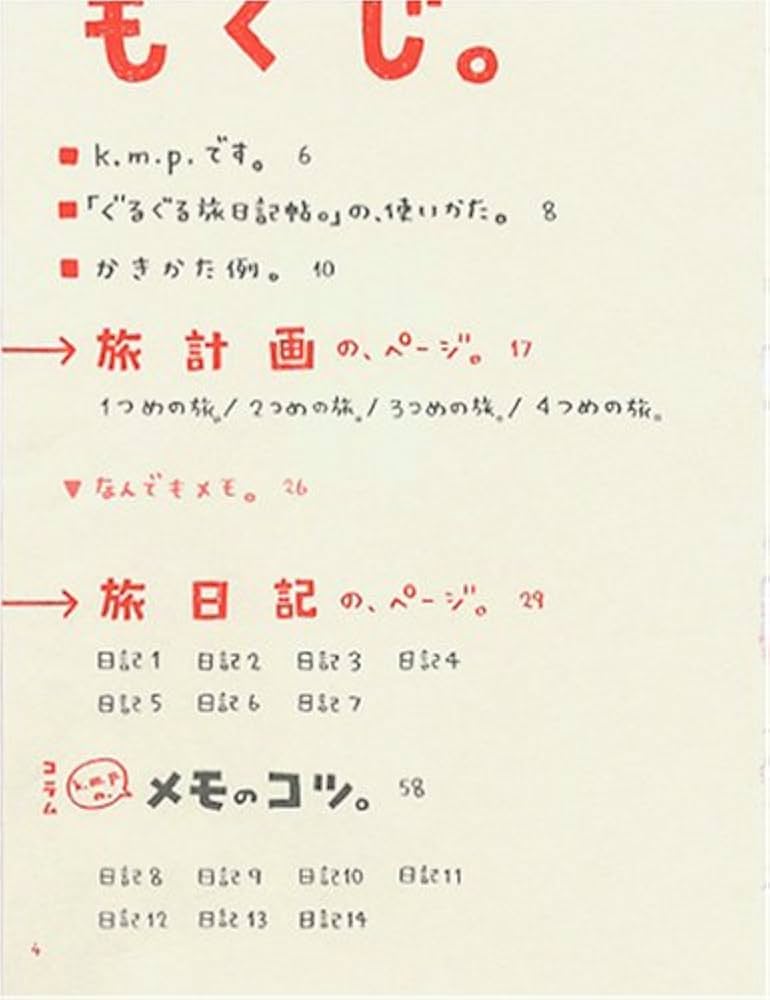 もくじ。
k.m.p.です。 6
「ぐるぐる旅日記帖。」の、使いかた。 8
かきかた例。 10
旅計画の、ページ。 17
1つめの旅。/ 2つめの旅。/ 3つめの旅。/ 4つめの旅。
▼なんでもメモ。 26
旅日記の、ページ。 29
日記1 日記2 日記3 日記4
日記5 日記6 日記7
コラム
k.m.p.
の.
メモのコツ。 58
日記8 日記9 日記10 日記11
日記12 日記13 日記14
4